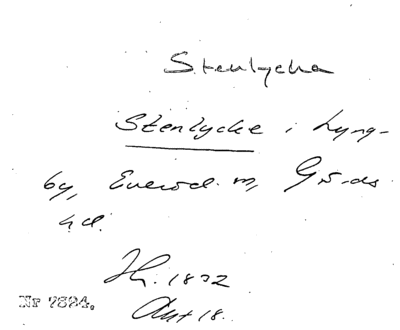 Stenlycka
Stenlycke i Lyng-
by, Everöd m, Gärds
hd.
Jb. 1832
Akt 18.
Nr 7824.